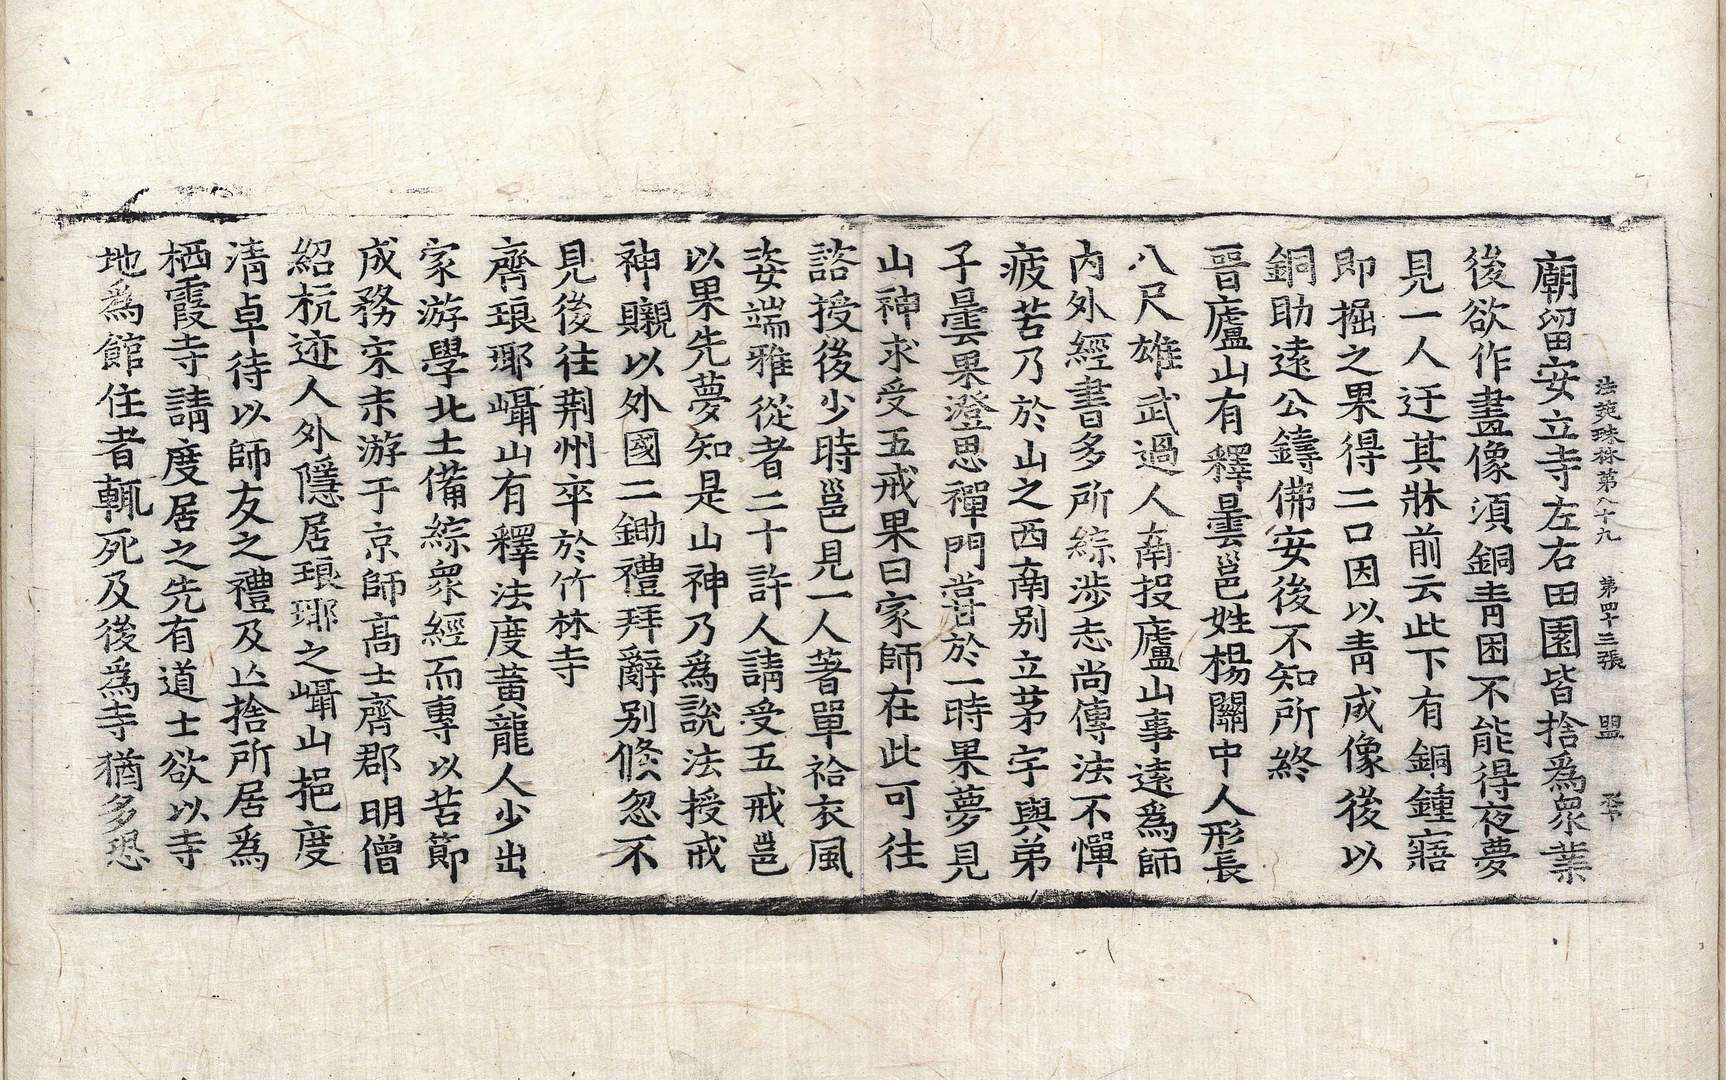 法苑珠林第八十九 第四十三張 盟
廟留安立寺左右田園皆捨為衆業
後欲作畫像湏銅青困不能得夜夢
見一人迂其牀前云此下有銅鍾寤
即掘之果得二口因以青成像後以
銅助遠公鑄佛安後不知所終
晉廬山有釋曇邕姓楊關中人形長
八尺雄武過人南投廬山事遠為師
内外經書多所綜涉志尚傳法不憚
疲苦乃於山之西南别立茅宇與弟
子曇果澄思禪門甞於一時果夢見
山神求受五戒果曰家師在此可往
諮授後少時邕見一人著單袷衣風
姿端雅從者二十許人請受五戒邕
以果先夢知是山神乃為說法授戒
神䞋以外國二鋤禮拜辭别倐忽不
見後往荆州卒於竹林寺
齊琅瑘㠋山有釋法度黃龍人少出
家游學北土備綜衆經而專以苦節
成務宋末游于京師高士齊郡明僧
紹杭迹人外隱居琅瑘之㠋山挹度
清卓待以師友之禮及亾捨所居為
栖霞寺請度居之先有道士欲以寺
地為館住者輒死及後為寺猶多恐